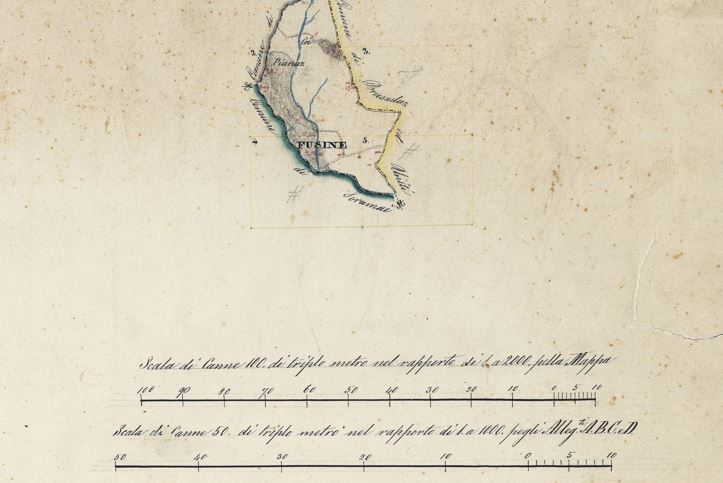 Comune di
2
3
in
Pianaz
Comune di Brusadaz
Comune
4
FUSINE
5
ed Uniti
de
Soramae
Scala di Canne 100. di triplo metro nel rapporto di 1. a 2000. pella Mappa
100 90 80 70 60 50 40 30 20 10 0 5 10
Scala di Canne 50. di triplo metro nel rapporto di 1. a 1000. pegli Alleg.ti A.B.C.e D
50 40 30 20 10 0 5 10